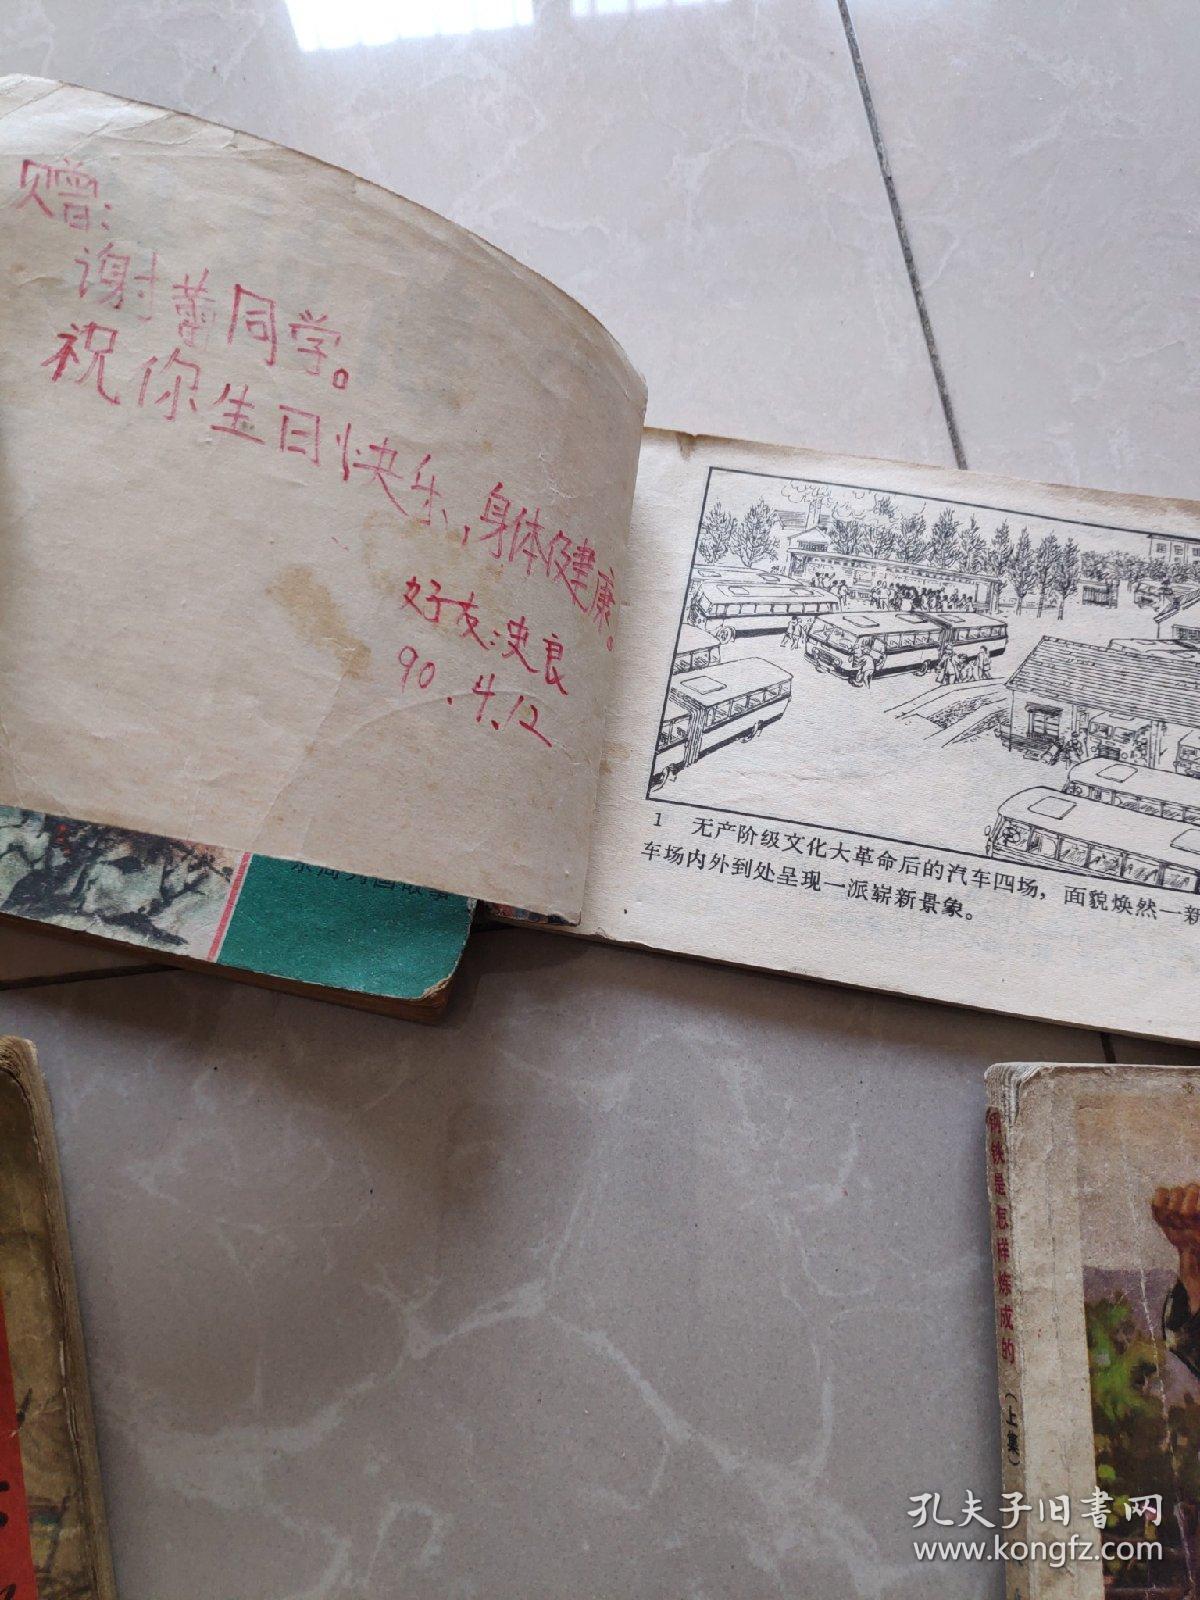 赠:
谢蕾同学。
祝你生日快乐,身体健康。
好友:史良
90.4.12
1 无产阶级文化大革命后的汽车四场,面貌焕然一新
车场内外到处呈现一派崭新景象。
钢铁是怎样炼成的(上集)
孔夫子旧书网
www.kongfz.com